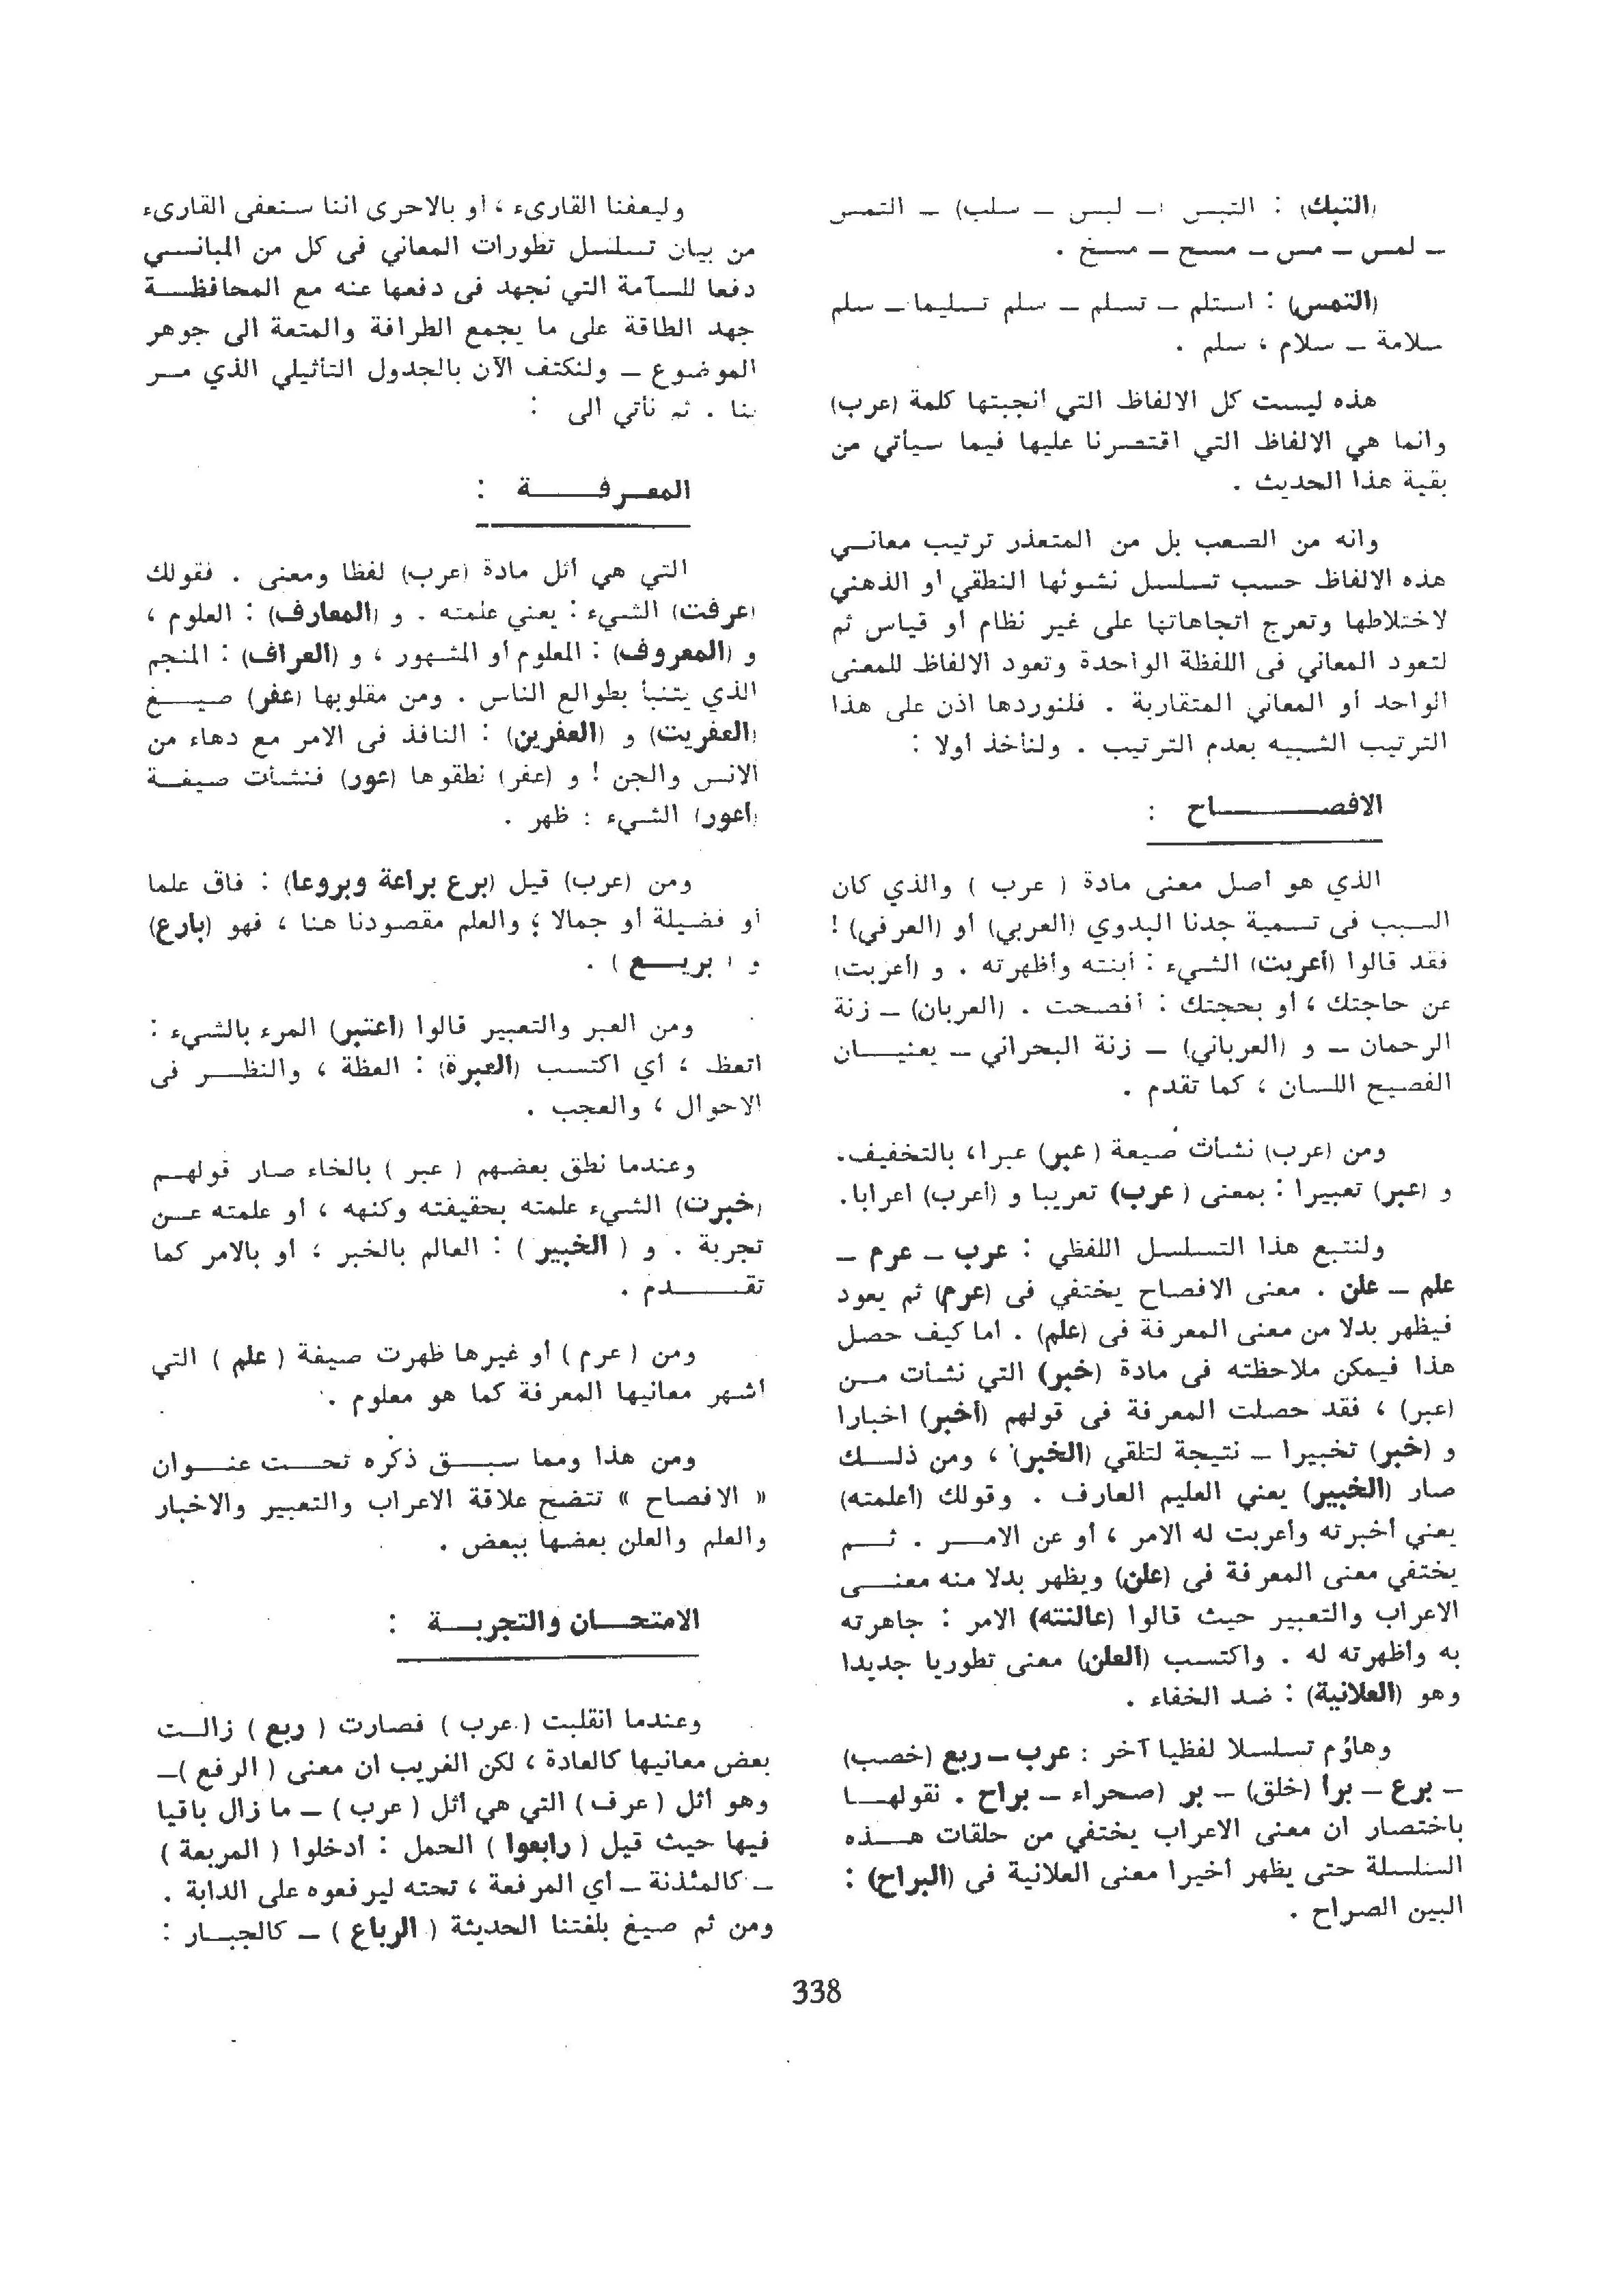 (التبك) : التبس (– لبس – سلب) – التمس
– لمس – مس – مسح – مسخ .
(التمس) : استلم – تسلم – سلم تسليما – سلم
سلامة – سلام ، سلم .
هذه ليست كل الالفاظ التي أنجبتها كلمة (عرب)
وانما هي الالفاظ التي اقتصرنا عليها فيما سيأتي من
بقية هذا الحديث .
وانه من الصعب بل من المتعذر ترتيب معانــي
هذه الالفاظ حسب تسلسل نشوئها النطقي أو الذهني
لاختلاطها وتعرج اتجاهاتها على غير نظام أو قياس ثم
لتعود المعاني فى اللفظة الواحدة وتعود الالفاظ للمعنى
الواحد أو المعاني المتقاربة . فلنوردها اذن على هذا
الترتيب الشبيه بعدم الترتيب . ولنأخذ أولا :
الافصــــــاح :
الذي هو أصل معنى مادة ( عرب ) والذي كان
السبب فى تسمية جدنا البدوي (العربي) أو (العرفي) !
فقد قالوا (أعربت) الشيء : أبنته وأظهرته . و (أعربت)
عن حاجتك ، أو بحجتك : أفصحت . (العربان) – زنة
الرحمان – و (العرباني) – زنة البحراني – يعنيــــان
الفصيح اللسان ، كما تقدم .
ومن (عرب) نشأت صيعة (عبر) عبرا، بالتخفيف.
و (عبر) تعبيرا : بمعنى (عرب) تعريبا و (أعرب) اعرابا.
ولنتبع هذا التسلسل اللفظي : عرب – عرم –
علم – علن . معنى الافصاح يختفي فى (عرم) ثم يعود
فيظهر بدلا من معنى المعرفة فى (علم) . أما كيف حصل
هذا فيمكن ملاحظته فى مادة (خبر) التي نشأت مــن
(عبر) ، فقد حصلت المعرفة فى قولهم (أخبر) اخبارا
و (خبر) تخبيرا – نتيجة لتلقي (الخبر) ، ومن ذلــك
صار (الخبير) يعني العليم العارف . وقولك (أعلمته)
يعني أخبرته وأعربت له الامر ، أو عن الامــر . ثــم
يختفي معنى المعرفة فى (علن) ويظهر بدلا منه معنــى
الاعراب والتعبير حيث قالوا (عالنته) الامر : جاهرته
به وأظهرته له . واكتسب (العلن) معنى تطوريا جديدا
وهو (العلانية) : ضد الخفاء .
وهاؤم تسلسلا لفظيا آخر : عرب – ربع (خصب)
– برع – برأ (خلق) – بر (صحراء – براح . نقولهــا
باختصار ان معنى الاعراب يختفي من حلقات هــذه
السلسلة حتى يظهر أخيرا معنى العلانية فى (البراح) :
البين الصراح .
وليعفنا القارىء ، أو بالاحرى اننا سنعفى القارىء
من بيان تسلسل تطورات المعاني فى كل من المبانــي
دفعا للسآمة التي نجهد فى دفعها عنه مع المحافظــة
جهد الطاقة على ما يجمع الطرافة والمتعة الى جوهر
الموضوع – ولنكتف الآن بالجدول التأثيلي الذي مــر
بنا . ثم نأتي الى :
المعــرفــــة :
التي هي أثل مادة (عرب) لفظا ومعنى . فقولك
(عرفت) الشيء : يعني علمته . و (المعارف) : العلوم ،
و (المعروف) : المعلوم أو المشهور ، و (العراف) : المنجم
الذي يتنبأ بطوالع الناس . ومن مقلوبها (عفر) صيــغ
(العفريت) و (العفرين) : النافذ فى الامر مع دهاء من
الانس والجن ! و (عفر) نطقوها (عور) فنشأت صيغــة
(أعور) الشيء : ظهر .
ومن (عرب) قيل (برع براعة وبروعا) : فاق علما
أو فضيلة أو جمالا ؛ والعلم مقصودنا هنا ، فهو (بارع)
و ( بريــع ) .
ومن العبر والتعبير قالوا (أعتبر) المرء بالشيء :
اتعظ ، أي اكتسب (العبرة) : العظة ، والنظــر فى
الاحوال ، والعجب .
وعندما نطق بعضهم ( عبر ) بالخاء صار قولهــم
(خبرت) الشيء علمته بحقيقته وكنهه ، أو علمته عــن
تجربة . و ( الخبير ) : العالم بالخبر ، أو بالامر كما
تقــــدم .
ومن ( عرم ) أو غيرها ظهرت صيغة ( علم ) التي
أشهر معانيها المعرفة كما هو معلوم .
ومن هذا ومما سبــق ذكره تحــت عنــوان
« الافصاح » تتضح علاقة الاعراب والتعبير والاخبار
والعلم والعلن بعضها ببعض .
الامتحــان والتجربــة :
وعندما انقلبت ( عرب ) فصارت ( ربع ) زالــت
بعض معانيها كالعادة ، لكن الغريب ان معنى ( الرفع )–
وهو أثل ( عرف ) التي هي أثل ( عرب ) – ما زال باقيا
فيها حيث قيل ( رابعوا ) الحمل : أدخلوا ( المربعة )
– كالمئذنة – أي المرفعة ، تحته ليرفعوه على الدابة .
ومن ثم صيغ بلغتنا الحديثة ( الرباع ) – كالجبــار :
338